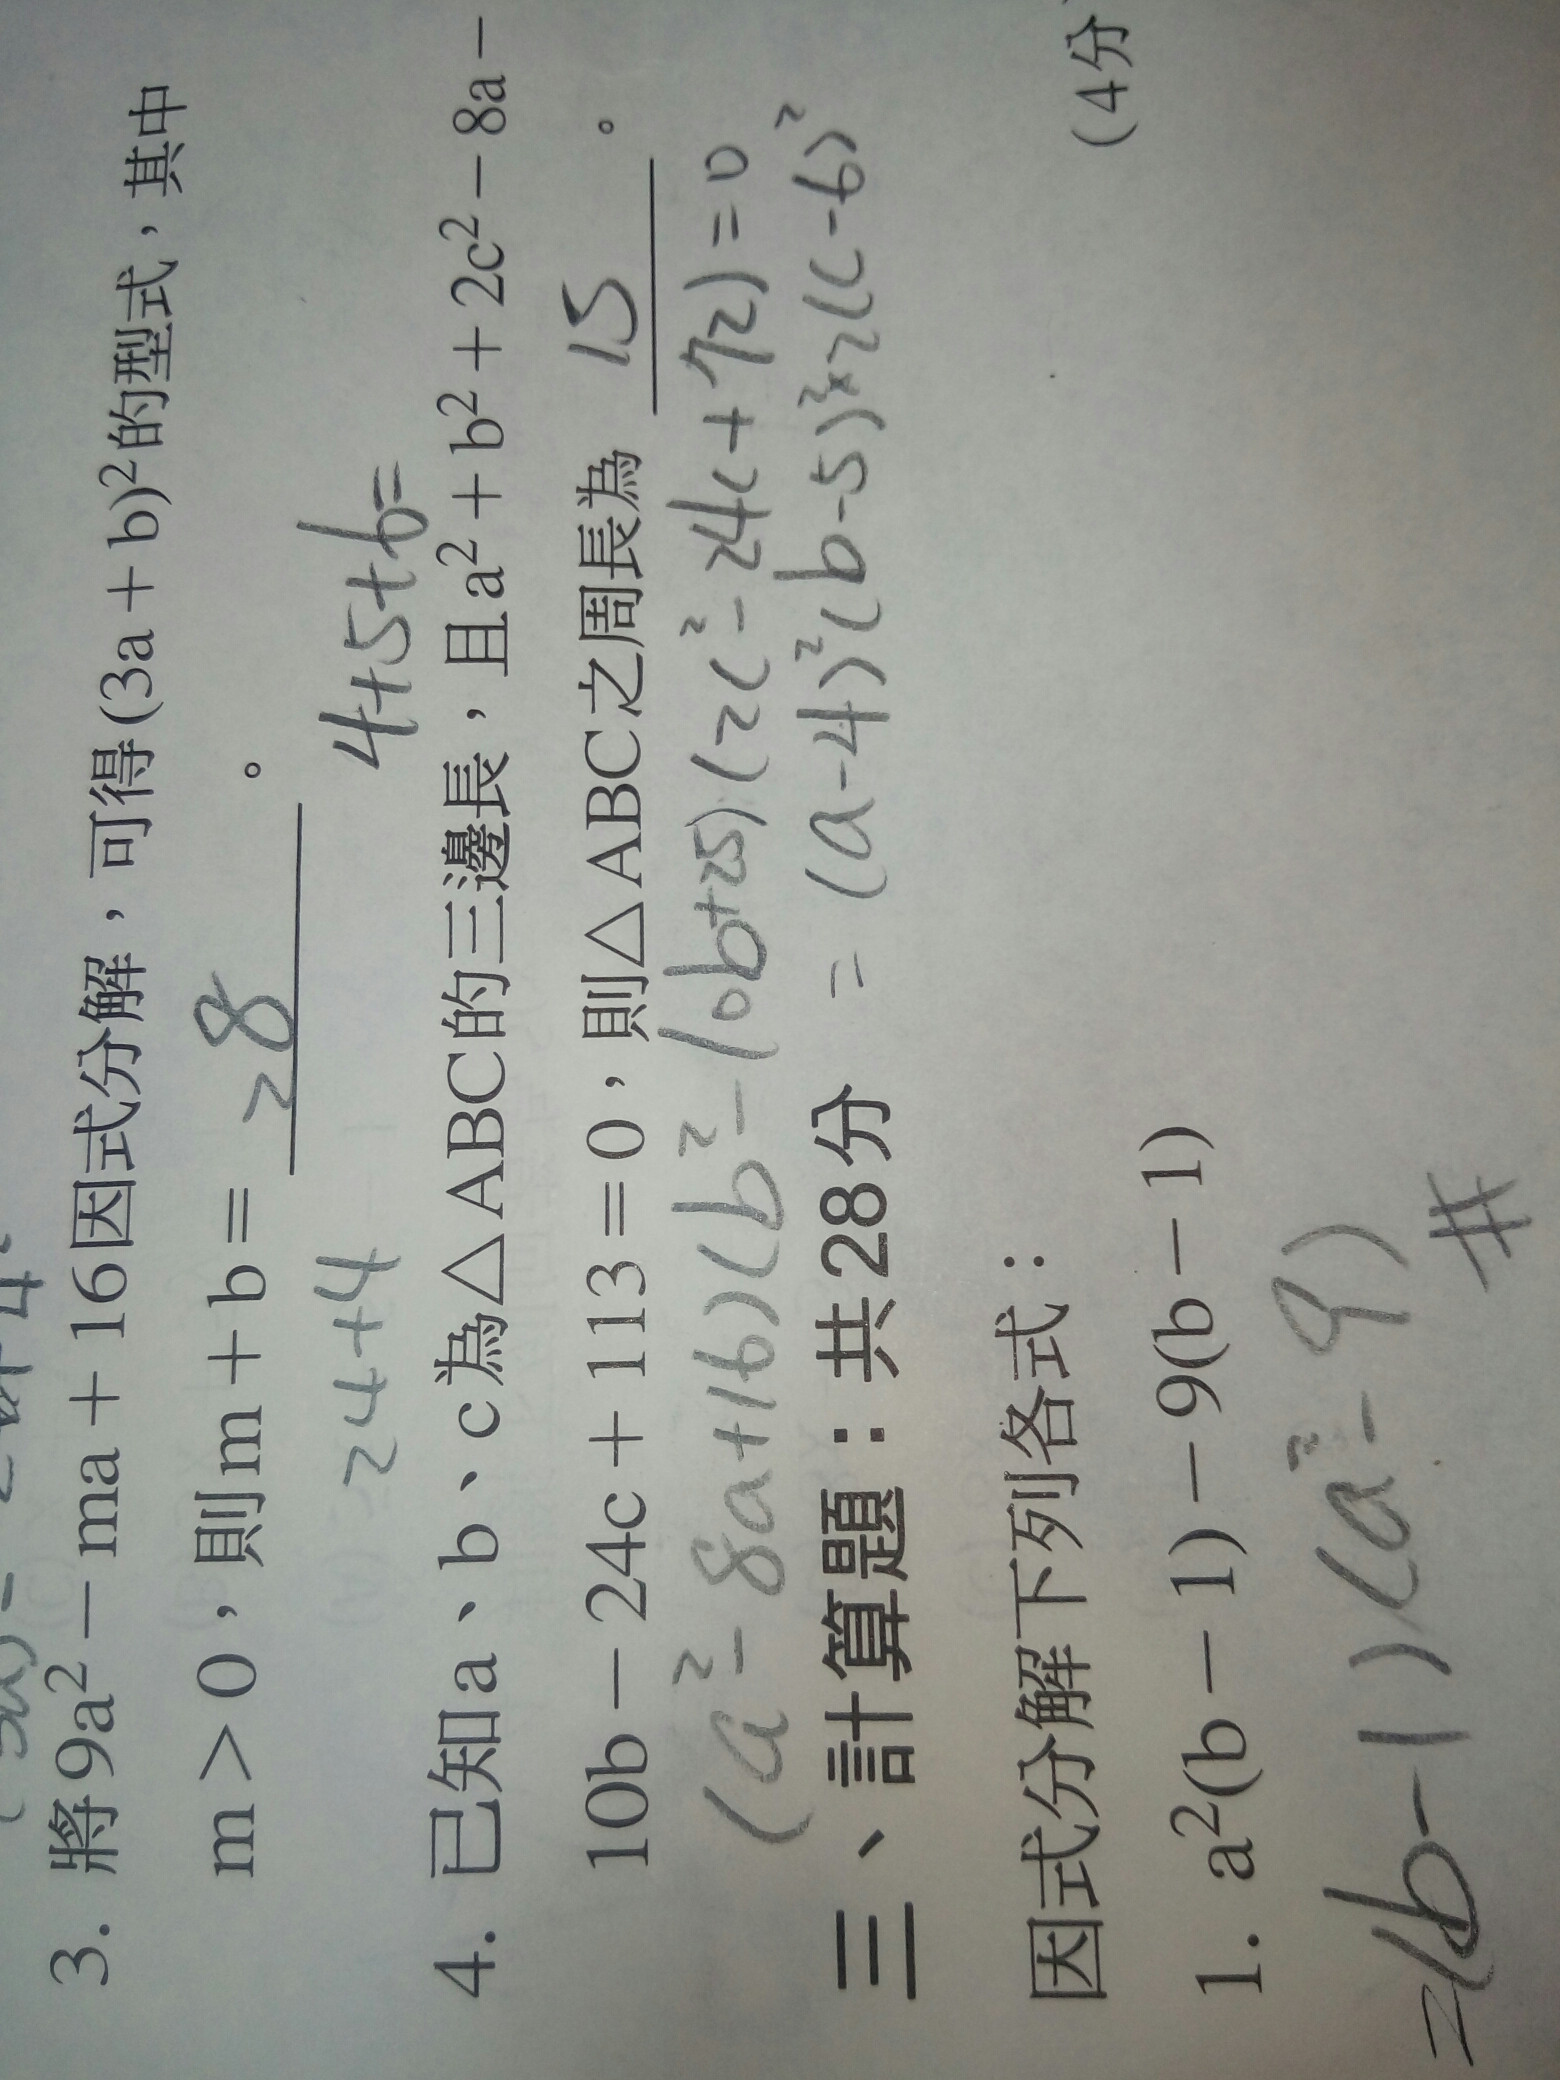 3. 將9a² − ma + 16因式分解，可得(3a + b)²的型式，其中
m > 0，則m + b = 28。
24+4
4+5+6=
4. 已知a、b、c為△ABC的三邊長，且a² + b² + 2c² − 8a −
10b − 24c + 113 = 0，則△ABC之周長為 15。
(a²-8a+16)(b²-10b+25)(2c²-24c+72)=0
=(a-4)²(b-5)²×2(c-6)²
三、計算題：共28分
因式分解下列各式：
(4分
1. a²(b − 1) − 9(b − 1)
=(b-1)(a²-9)
#